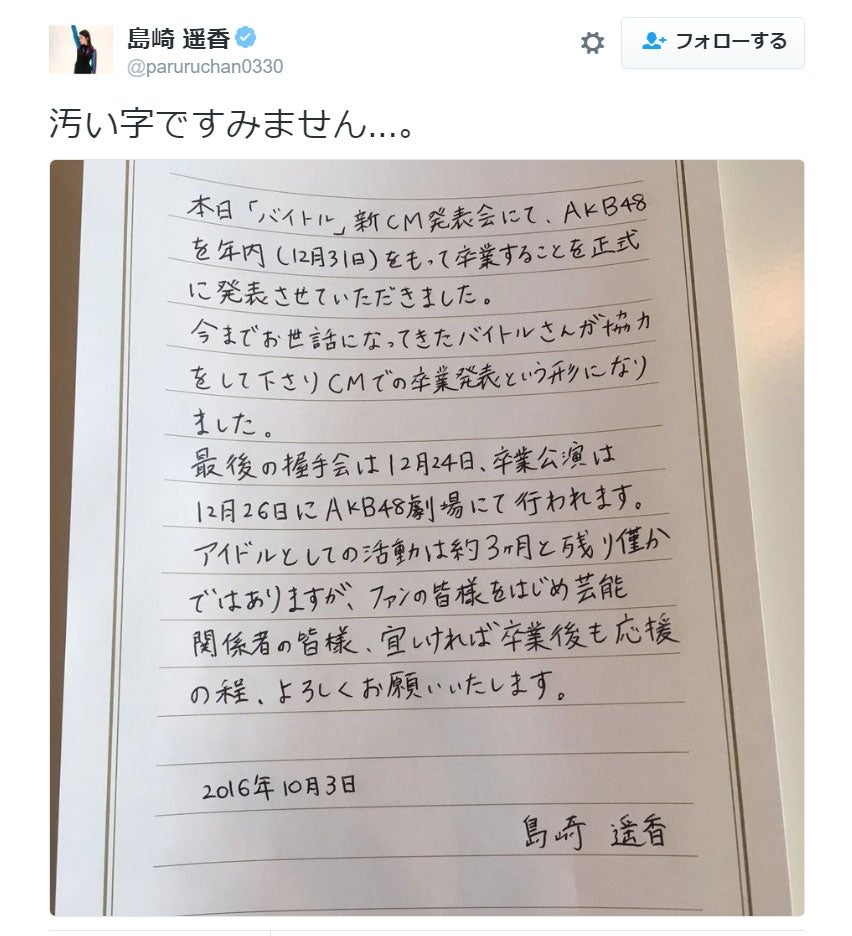 島崎 遥香
@paruruchan0330
フォローする
汚い字ですみません...。
本日「バイトル」新CM発表会にて、AKB48
を年内(12月31日)をもって卒業することを正式
に発表させていただきました。
今までお世話になってきたバイトルさんが協力
をして下さりCMでの卒業発表という形になり
ました。
最後の握手会は12月24日、卒業公演は
12月26日にAKB48劇場にて行われます。
アイドルとしての活動は約3ヶ月と残り僅か
ではありますが、ファンの皆様をはじめ芸能
関係者の皆様、宜しければ卒業後も応援
の程、よろしくお願いいたします。
2016年10月3日
島崎 遥香